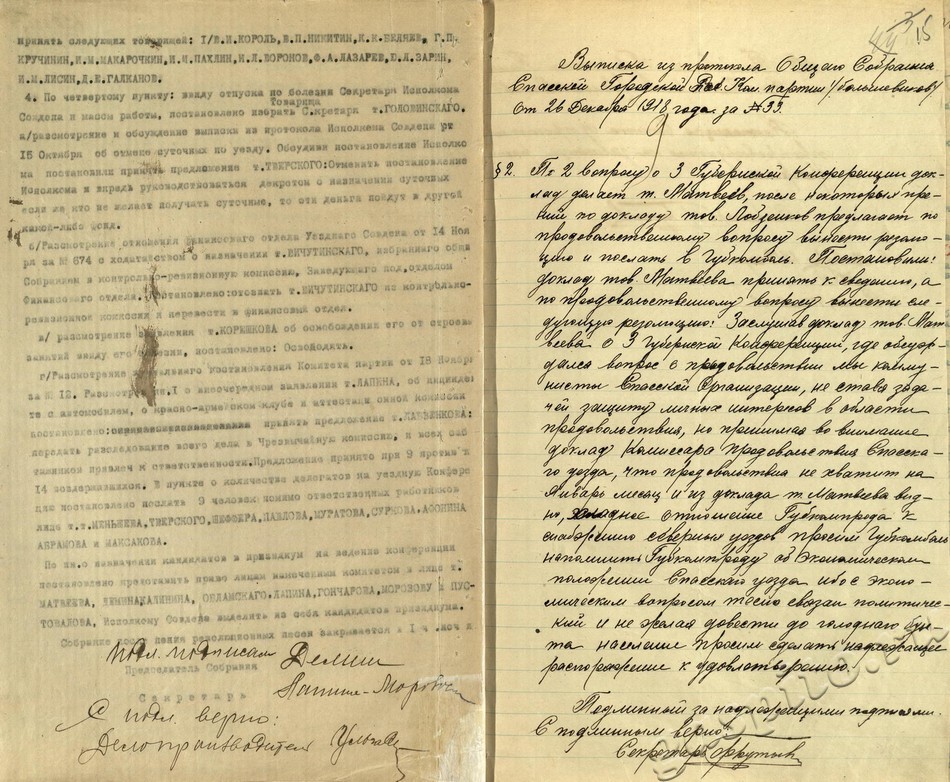 принять следующих товарищей: I/Е.И.КОРОЛЬ, Е.П.НИКИТИН, К.К.БЕЛЯЕВ, Г.П.
КРУЧИНИН, И.М.МАКАРОЧКИН, И.И.ПАХЛИН, И.Л.ВОРОНОВ, Ф.А.ЛАЗАРЕВ, D.Л.ЗАРИН,
И.М.ЛИСИН, Д.Е.ГАЛКАНОВ.
4. По четвертому пункту: ввиду отпуска по болезни Секретаря Исполкома
Товарища
Совдепа и массы работы, постановлено избрать Секретаря т.ГОЛОВИНСКАГО.
а/рассмотрение и обсуждение выписки из протокола Исполкома Совдепа от
15 Октября об отмене суточных по уезду. Обсудив постановление Исполко
ма постановили принять предложение т.ТВЕРСКОГО: Отменить постановление
Исполкома и впредь руководствоваться декретом о назначении суточных
если же кто не желает получать суточные, то эти деньги пойдут в другой
какой-либо фонд.
б/Рассмотрение отношения финансового отдела Уездного Совдепа от 14 Ноя
ря за № 674 с ходатайством о назначении т.ВИЧУТИНСКАГО, избраннаго общи
Собранием в контрольно-ревизионную комиссию, Заведующаго под,отделом
Финансового отдела. Постановлено: отозвать т.ВИЧУТИНСКАГО из контрольно-
ревизионной комиссии и перевести в финансовый отдел.
в/ рассмотрение заявления т.КОРЯШКОВА об освобождении его от строевых
занятий ввиду его болезни, постановлено: Освободить.
г/Рассмотрение постановления Комитета партии от 18 Ноябр
за № 12. Рассмотрение I о внеочередном заявлении т.ЛАПИНА, об инциден
те с автомобилем, о красно-армейском клубе и аттестации оной комиссии
постановлено: принять предложение т.ЛАБЗЕНКОВА:
передать разследование всего дела в Чрезвычайную комиссию, и всех саб
тажников привлечь к ответственности. Предложение принято при 9 против и
14 воздержавшихся. В пункте о количестве делегатов на уездную Конфере
цию постановлено послать 9 человек помимо ответственных работников
лице т.т.МЕНЬШЕВА, ТВЕРСКОГО, ШЕФФЕРА, ПАВЛОВА, МУРАТОВА, СУРКОВА, АФОНИНА
АБРАМОВА и МАКСАКОВА.
По пи.о назначении кандидатов в президиум на ведение конференции
постановлено предоставить право лицам намеченным комитетом в лице т.
МАТВЕЕВА, ДЕМИНАКАЛИНИНА, ОБЛАМСКАГО, ЛАПИНА, ГОНЧАРОВА, МОРОЗОВУ и ПУС-
ТОВАЛОВА, Исполкому Совдепа выделить из себя кандидатов президиума.
Собрание после пения революционных песен закрывается в I ч. ночи
Подл. подписал Демин
Председатель Собрания
Лапин-Морозов
Секретарь
С подл. верно:
Делопроизводитель
15
Выписка из протокола Общаго Собрания
Спасской Городской Ком партии /большевиков/
От 26 Декабря 1918 года за №33.
§ 2. По 2 вопросу о 3 Губернской Конференции док-
лад делает т. Матвеев, после некоторых пре-
ний по докладу тов. Лобзенков предлагает по
продовольственному вопросу вынести резолю-
цию и послать в Губкомболь. Постановили:
доклад тов. Матвеева принять к сведению, а
по продовольственному вопросу вынести сле-
дующую резолюцию: Заслушав доклад тов. Мат
веева о 3 Губернской Конференции, где обсуж-
дался вопрос о продовольствии мы комму-
нисты Спасской Организации, не ставя зада-
чей защиту личных интересов в области
продовольствия, но принимая во внимание
доклад Комиссара Продовольствия Спасска-
го уезда, что продовольствия не хватит на
Январь месяц и из доклада т. Матвеева вид-
но, хладное отношение Губкомпрода к
снабжению северных уездов просим Губкомболь
напомнить Губкомпроду об Экономическом
положении Спасскаго уезда ибо с эконо-
мическим вопросом тесно связан политичес-
кий и не желая довести до голоднаго бун-
та население просим сделать надлежащее
распоряжение к удовлетворению.
Подлинный за надлежащими подписями.
С подлинным верно:
Секретарь